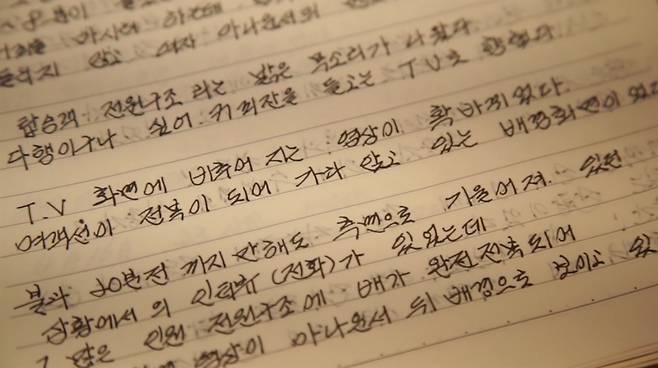 탑승객 전원구조 라는 밝은 목소리가 나왔다
다행이구나 싶어 커피잔을 들고는 TV로 향했다.
T.V 화면에 비추어 지는 영상이 확 바뀌었다.
여객선이 전복이 되어 가라 앉고 있는 배경화면이 있
불과 30분전 까지만해도 측면으로 기울어져 있던
상황에서의 인터뷰(전화)가 있었는데
많은 인원 전원구조에 배가 완전전복되어
영상이 아나운서 뒤 배경으로 보이고 있